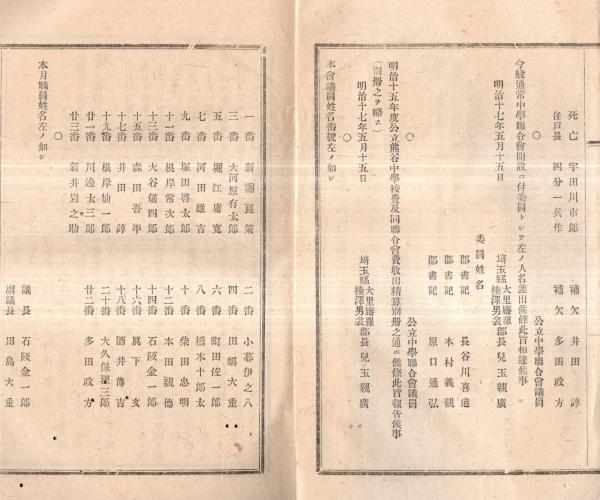 死亡 宇田川市郎 補欠 井田諄
任戸長 四分一兵作 補欠 多田政方
○ 公立中學聯合會議員
今般通常中學聯合會開設ニ付委員トシテ左ノ人名差出候條此旨相達候事
明治十七年五月十五日
埼玉縣大里幡羅榛澤男衾郡長兒玉親廣
委員姓名
郡書記 長谷川喜道
郡書記 木村義親
郡書記 原口通弘
○ 公立中學聯合會議員
明治十五年度公立熊谷中學校費及同聯合會費收出精算別册之通ニ候條此旨報告候事
(別册之ヲ略ス)
明治十七年五月十五日
埼玉縣大里幡羅榛澤男衾郡長兒玉親廣
○
本會議員姓名番號左ノ如シ
一番 新堀良策 二番 小暮伊之八
三番 大河原有太郎 四番 田嶋大重
五番 堀江庸寬 六番 町田佐一郎
七番 河田雄吉 八番 橋本十郎太
九番 塚田啓太郎 十番 柴田忠明
十一番 根岸常次郎 十二番 本田親德
十三番 大谷儀四郎 十四番 石阪金一郎
十五番 森田吾平 十六番 眞下文
十七番 井田諄 十八番 酒井傳吉
十九番 根岸仙一郎 二十番 大久保三郎
廿一番 川邊太三郎 廿二番 多田政方
廿三番 新井岩之助
○
本月職員姓名左ノ如シ
議長 石阪金一郎
副議長 田島大重